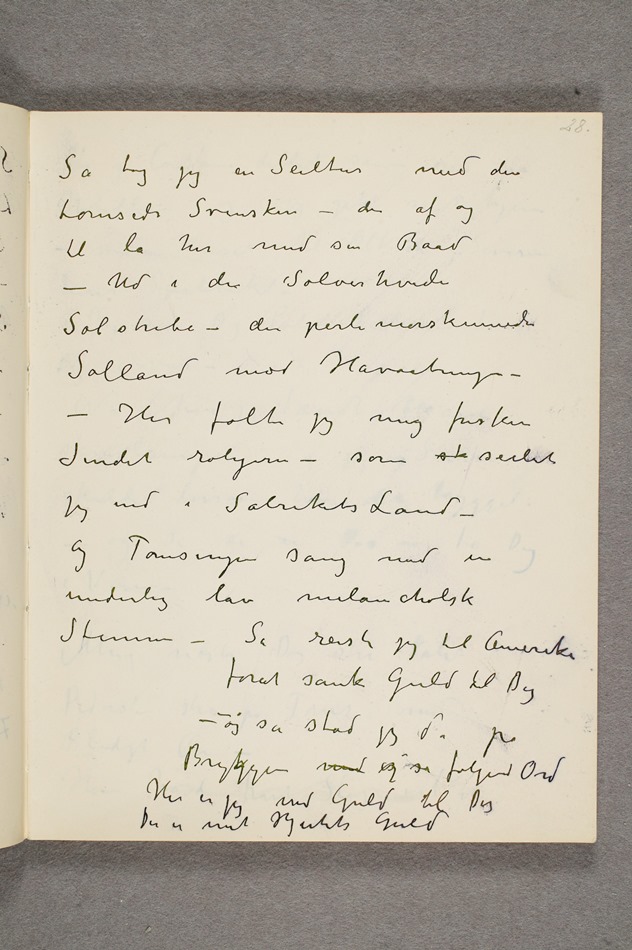 28.
Så tog jeg en Seiltur med den
tomsede Svensken – der af og
til la her med sin Baad
– Ud i den Solverhvide
Sol stribe – den perlemorskinnende
Solland mod Havaabningen –
– Her følte jeg mig frisken
Sindet roligere – som seilet
jeg ind i Solrikets Land –
Og Tomsingen sang med en
underlig lav melancholsk
Stemme – Så reiste jeg til Amerika
forat sanke Guld til Dig
– og så stod jeg da på
Bryggen med og sa følgend Ord
Her er jeg med Guld til Dig
Der er mit Hjertets Guld